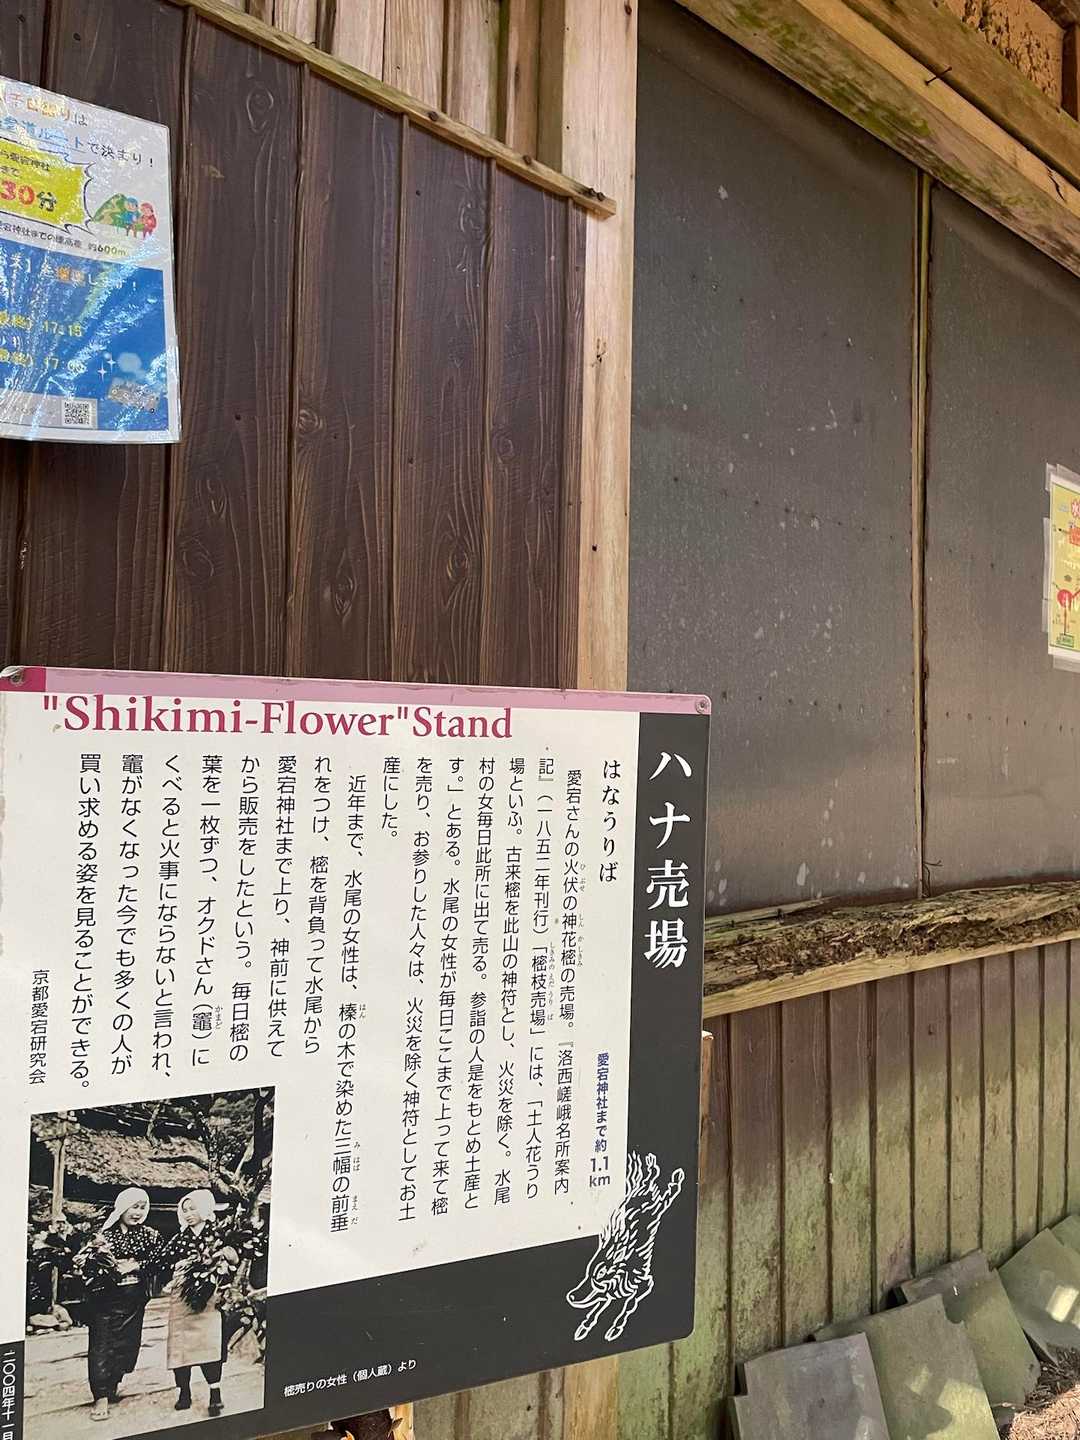 参道ルートで決まり！
30分
約600m
17:15
17:00
"Shikimi-Flower"Stand
ハナ売場
はなうりば
愛宕神社まで約1.1km
愛宕さんの火伏の神花樒の売場。『洛西嵯峨名所案内
記』（一八五二年刊行）「樒枝売場」には、「土人花うり
場といふ。古来樒を此山の神符とし、火災を除く。水尾
村の女毎日此所に出て売る。参詣の人是をもとめ土産と
す。」とある。水尾の女性が毎日ここまで上って来て樒
を売り、お参りした人々は、火災を除く神符としてお土
産にした。
近年まで、水尾の女性は、榛の木で染めた三幅の前垂
れをつけ、樒を背負って水尾から
愛宕神社まで上り、神前に供えて
から販売をしたという。毎日樒の
葉を一枚ずつ、オクドさん（竈）に
くべると火事にならないと言われ、
竈がなくなった今でも多くの人が
買い求める姿を見ることができる。
京都愛宕研究会
樒売りの女性（個人蔵）より
二〇〇四年十一月